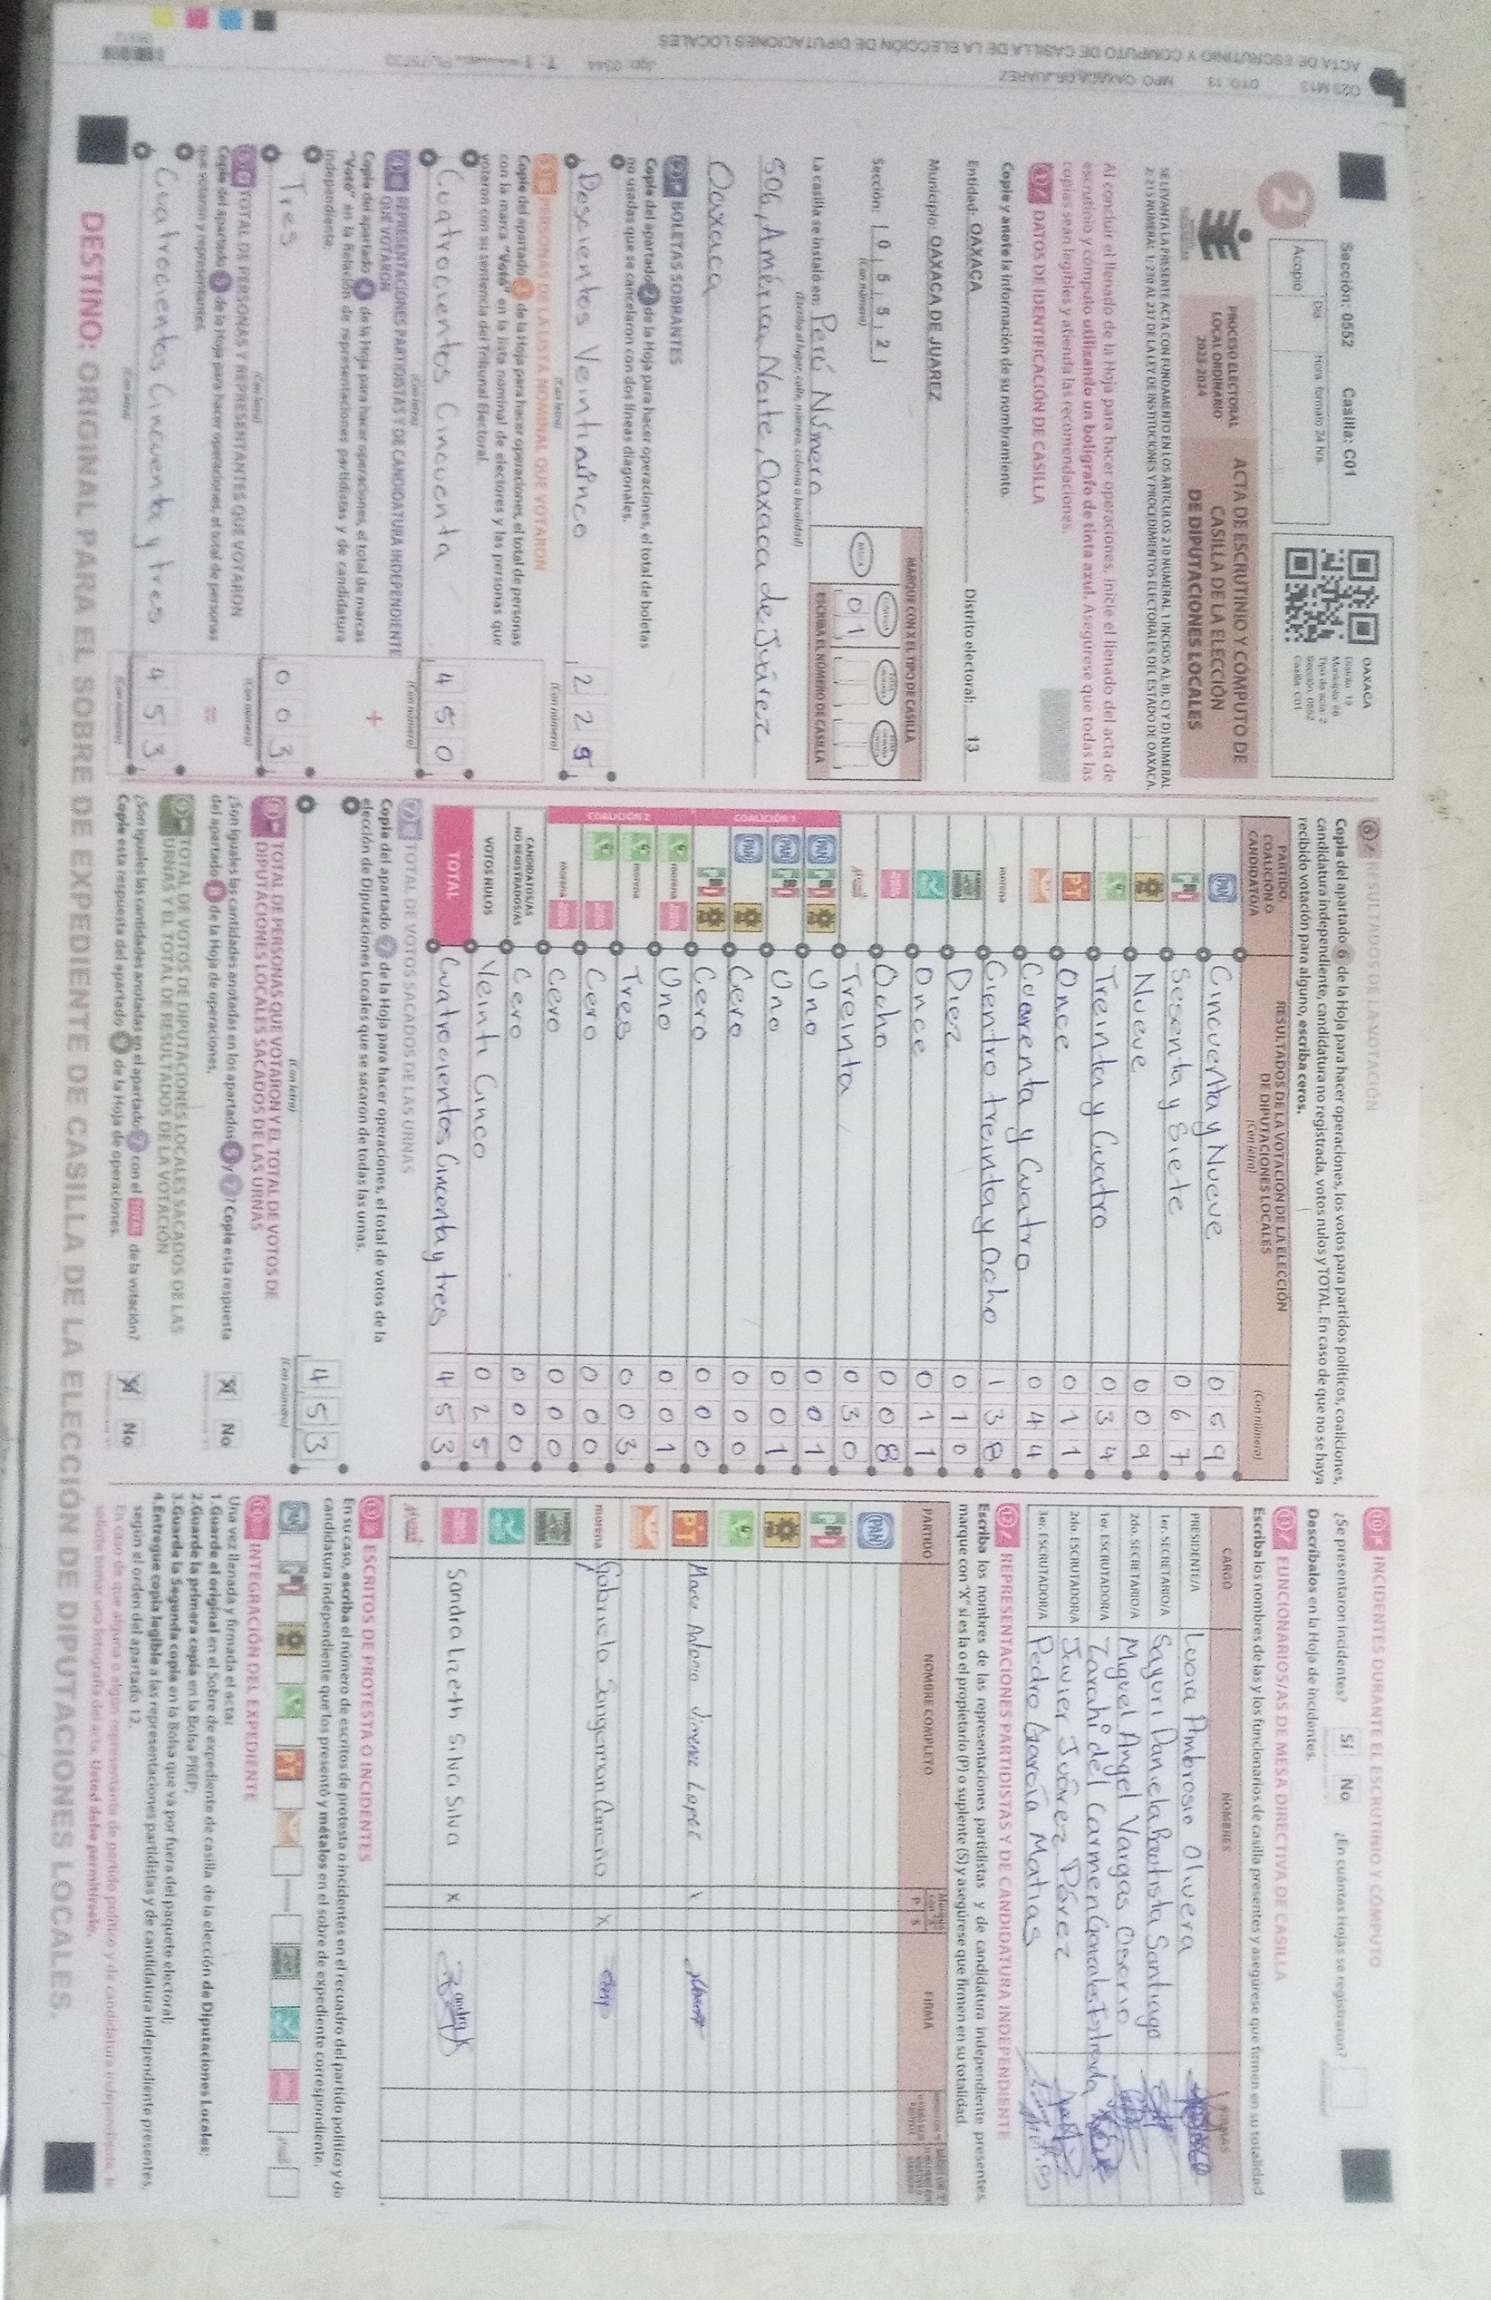 Sección: 0552 Casilla: C01
2
Acopio
Día Hora formato 24 hrs.
OAXACA
Distrito: 13
Municipio: 66
Tipo de acta: 2
Sección: 0552
Casilla: C01
PROCESO ELECTORAL
LOCAL ORDINARIO
2023-2024
ACTA DE ESCRUTINIO Y CÓMPUTO DE
CASILLA DE LA ELECCIÓN
DE DIPUTACIONES LOCALES
SE LEVANTA LA PRESENTE ACTA CON FUNDAMENTO EN LOS ARTÍCULOS 210 NUMERAL 1 INCISOS A), B), C) Y D) NUMERAL
2; 215 NUMERAL 1; 230 AL 237 DE LA LEY DE INSTITUCIONES Y PROCEDIMIENTOS ELECTORALES DEL ESTADO DE OAXACA.
Al concluir el llenado de la Hoja para hacer operaciones, inicie el llenado del acta de
escrutinio y cómputo utilizando un bolígrafo de tinta azul. Asegúrese que todas las
copias sean legibles y atienda las recomendaciones.
1 DATOS DE IDENTIFICACIÓN DE CASILLA
Copie y anote la información de su nombramiento.
Entidad: OAXACA Distrito electoral: 13
Municipio: OAXACA DE JUAREZ
Sección: 0 5 5 2
(Con número)
MARQUE CON X EL TIPO DE CASILLA
BÁSICA
0 1
ESCRIBA EL NÚMERO DE CASILLA
La casilla se instaló en: Perú Número
(Escriba el lugar, calle, número, colonia o localidad)
506, América Norte, Oaxaca de Juárez
Oaxaca
2 BOLETAS SOBRANTES
Copie del apartado 2 de la Hoja para hacer operaciones, el total de boletas
no usadas que se cancelaron con dos líneas diagonales.
Doscientos Veinticinco 2 2 5
(Con letra) (Con número)
3 PERSONAS DE LA LISTA NOMINAL QUE VOTARON
Copie del apartado 3 de la Hoja para hacer operaciones, el total de personas
con la marca "Votó" en la lista nominal de electores y las personas que
votaron con su sentencia del Tribunal Electoral.
Cuatrocientos Cincuenta 4 5 0
(Con letra) (Con número)
4 REPRESENTACIONES PARTIDISTAS Y DE CANDIDATURA INDEPENDIENTE
QUE VOTARON
Copie del apartado 4 de la Hoja para hacer operaciones, el total de marcas
"Votó" en la Relación de representaciones partidistas y de candidatura
independiente.
+
Tres 0 0 3
(Con letra) (Con número)
5 TOTAL DE PERSONAS Y REPRESENTANTES QUE VOTARON
Copie del apartado 5 de la Hoja para hacer operaciones, el total de personas
que votaron y representantes.
=
Cuatrocientos Cincuenta y tres 4 5 3
(Con letra) (Con número)
6 RESULTADOS DE LA VOTACIÓN
Copie del apartado 6 de la Hoja para hacer operaciones, los votos para partidos políticos, coaliciones,
candidatura independiente, candidatura no registrada, votos nulos y TOTAL. En caso de que no se haya
recibido votación para alguno, escriba ceros.
PARTIDO,
COALICIÓN O
CANDIDATO/A
RESULTADOS DE LA VOTACIÓN DE LA ELECCIÓN
DE DIPUTACIONES LOCALES
(Con letra) (Con número)
PAN Cincuenta y Nueve 0 5 9
PRI Sesenta y Siete 0 6 7
Nueve 0 0 9
Treinta y Cuatro 0 3 4
PT Once 0 1 1
Cuarenta y Cuatro 0 4 4
morena Cientro treinta y Ocho 1 3 8
Diez 0 1 0
Once 0 1 1
Ocho 0 0 8
Treinta 0 3 0
COALICIÓN 1
PAN PRI Uno 0 0 1
PAN PRI Uno 0 0 1
PAN Cero 0 0 0
PRI Cero 0 0 0
COALICIÓN 2
morena Uno 0 0 1
morena Tres 0 0 3
Cero 0 0 0
morena Cero 0 0 0
CANDIDATOS/AS
NO REGISTRADOS/AS Cero 0 0 0
VOTOS NULOS Veinti Cinco 0 2 5
TOTAL Cuatrocientos Cincenta y tres 4 5 3
7 TOTAL DE VOTOS SACADOS DE LAS URNAS
Copie del apartado 7 de la Hoja para hacer operaciones, el total de votos de la
elección de Diputaciones Locales que se sacaron de todas las urnas.
4 5 3
(Con letra) (Con número)
8 TOTAL DE PERSONAS QUE VOTARON Y EL TOTAL DE VOTOS DE
DIPUTACIONES LOCALES SACADOS DE LAS URNAS
¿Son iguales las cantidades anotadas en los apartados 5 y 7? Copie esta respuesta
del apartado 8 de la Hoja de operaciones.
X No
9 TOTAL DE VOTOS DE DIPUTACIONES LOCALES SACADOS DE LAS
URNAS Y EL TOTAL DE RESULTADOS DE LA VOTACIÓN
¿Son iguales las cantidades anotadas en el apartado 7 con el TOTAL de la votación?
Copie esta respuesta del apartado 9 de la Hoja de operaciones.
X No
10 INCIDENTES DURANTE EL ESCRUTINIO Y CÓMPUTO
¿Se presentaron incidentes? Sí No ¿En cuántas Hojas se registraron?
Descríbalos en la Hoja de Incidentes.
11 FUNCIONARIOS/AS DE MESA DIRECTIVA DE CASILLA
Escriba los nombres de las y los funcionarios de casilla presentes y asegúrese que firmen en su totalidad
CARGO NOMBRES FIRMAS
PRESIDENTE/A Lucia Ambrosio Olivera
1er. SECRETARIO/A Sayuri Daniela Bautista Santiago
2do. SECRETARIO/A Miguel Angel Vargas Osorio
1er. ESCRUTADOR/A Zarahi del Carmen Gonzalez Estrada
2do. ESCRUTADOR/A Javier Juárez Pérez
3er. ESCRUTADOR/A Pedro García Matias
12 REPRESENTACIONES PARTIDISTAS Y DE CANDIDATURA INDEPENDIENTE
Escriba los nombres de las representaciones partidistas y de candidatura independiente presentes,
marque con "X" si es la o el propietario (P) o suplente (S) y asegúrese que firmen en su totalidad
PARTIDO NOMBRE COMPLETO P S FIRMA
PAN
PRI
PT Marco Antonio Jimenez Lopez
morena Gabriela Sangerman Carreño X
Sandra Lizeth Silva Silva X
13 ESCRITOS DE PROTESTA O INCIDENTES
En su caso, escriba el número de escritos de protesta o incidentes en el recuadro del partido político y de
candidatura independiente que los presentó y métalos en el sobre de expediente correspondiente.
PAN PRI PT
14 INTEGRACIÓN DEL EXPEDIENTE
Una vez llenada y firmada el acta:
1. Guarde el original en el Sobre de expediente de casilla de la elección de Diputaciones Locales;
2. Guarde la primera copia en la Bolsa PREP;
3. Guarde la Segunda copia en la Bolsa que va por fuera del paquete electoral;
4. Entregue copia legible a las representaciones partidistas y de candidatura independiente presentes
según el orden del apartado 12.
En caso de que alguna o algún representante de partido político y de candidatura independiente, le
solicite tomar una fotografía del acta, Usted debe permitírselo.
DESTINO: ORIGINAL PARA EL SOBRE DE EXPEDIENTE DE CASILLA DE LA ELECCIÓN DE DIPUTACIONES LOCALES.
023 M13 DTO. 13 MPO. OAXACA DE JUAREZ
ACTA DE ESCRUTINIO Y CÓMPUTO DE CASILLA DE LA ELECCIÓN DE DIPUTACIONES LOCALES